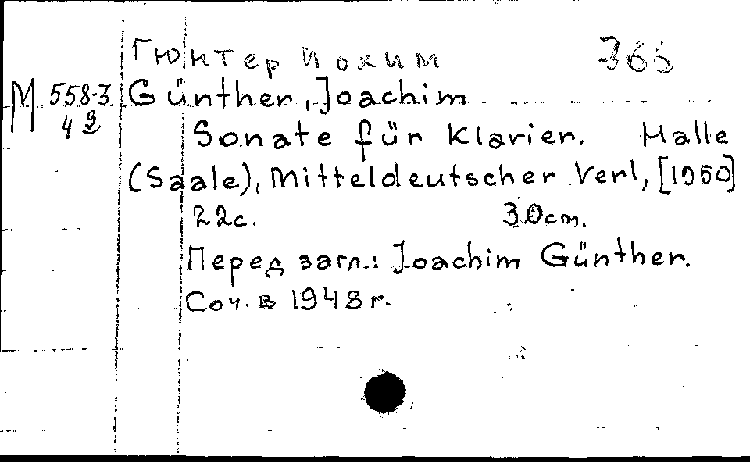 Гюнтер Иохим 366
М 558-3 Günther, Joachim
42 Sonate für Klavier. Halle
(Saale), Mitteldeutscher Verl, [1950]
22с. 30cm.
Перед загл.: Joachim Günther.
Соч. в 1948 г.